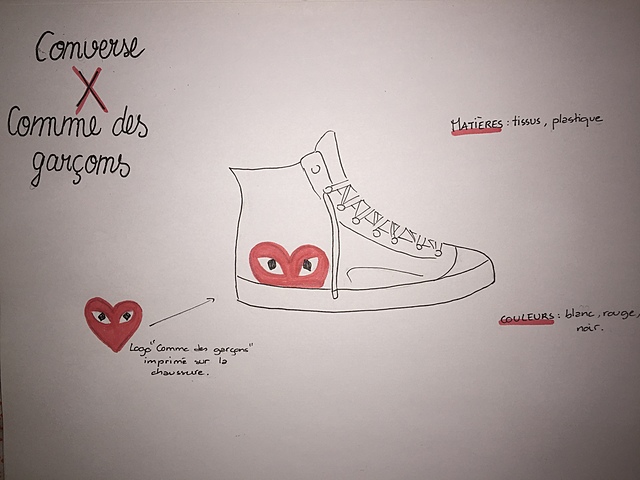 Converse
X
Comme des
garçons
MATIÈRES : tissus, plastique
COULEURS : blanc, rouge,
noir.
Logo "Comme des garçons"
imprimé sur la
chaussure.